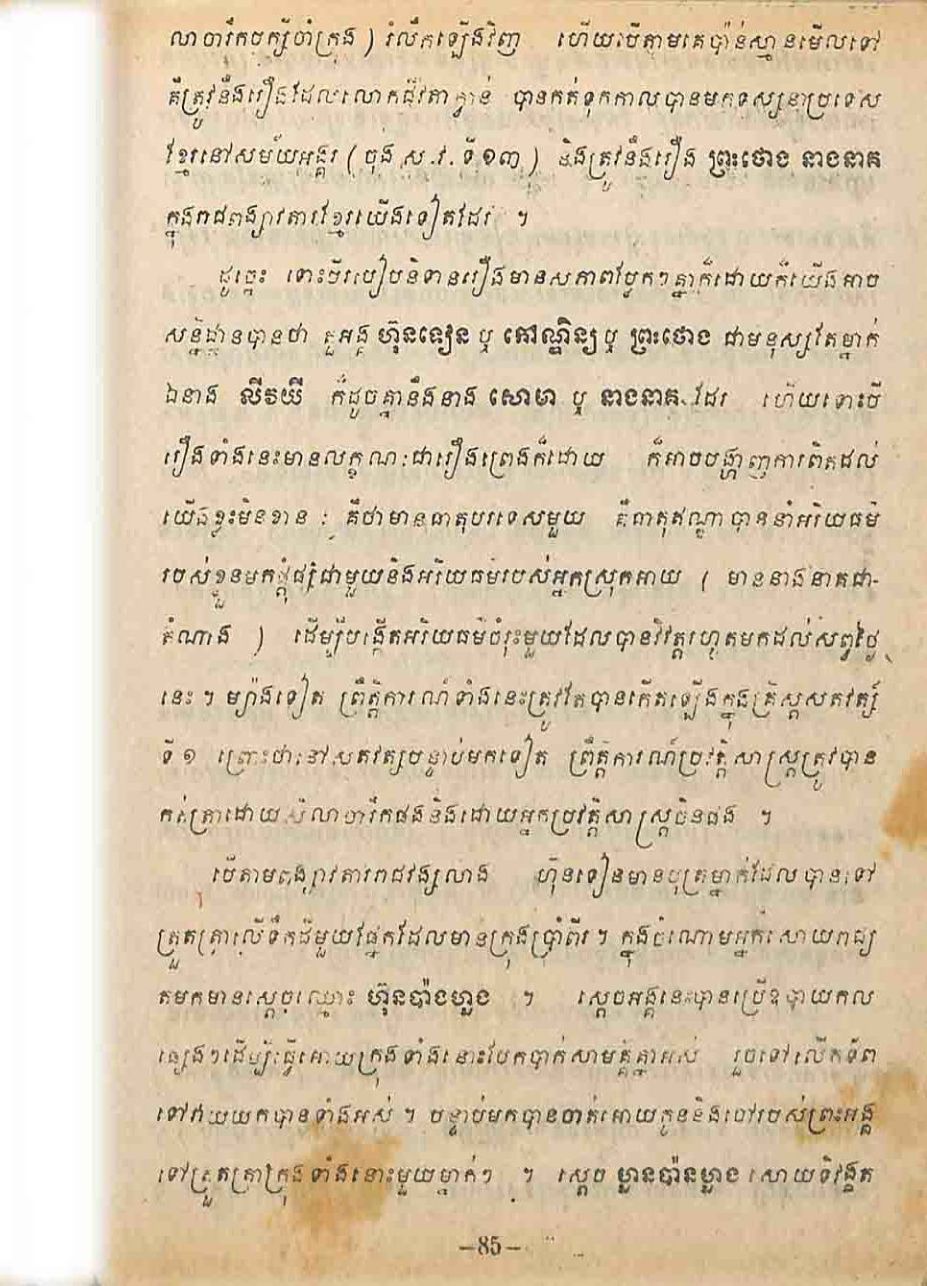 លាចារឹកបក្សីចាំក្រុង ) រំលឹកឡើងវិញ ហើយបើតាមគេប៉ាន់ស្មានមើលទៅ
គឺត្រូវនឹងរឿងដែលលោកជីវតាក្វាន់ បានកត់ទុកកាលបានមកទស្សនាប្រទេស
ខ្មែរនៅសម័យអង្គរ ( ចុង ស.វ. ទី១៣ ) និងត្រូវនឹងរឿង ព្រះថោង នាងនាគ
ក្នុងរាជពង្សាវតារខ្មែរយើងទៀតដែរ ។
ដូច្នេះ ទោះបីរបៀបនិទានរឿងមានសភាពប្លែកៗគ្នាក៏ដោយក៏យើងអាច
សន្និដ្ឋានបានថា តួអង្គ ហ៊ុនទៀន ឬ កៅណ្ឌិន្យ ឬ ព្រះថោង ជាមនុស្សតែម្នាក់
ឯនាង លីវយី ក៏ដូចគ្នានឹងនាង សោមា ឬ នាងនាគ ដែរ ហើយទោះបី
រឿងទាំងនេះមានលក្ខណៈជារឿងព្រេងក៏ដោយ ក៏អាចបង្ហាញការពិតដល់
យើងខ្លះមិនខាន : គឺថាមានធាតុបរទេសមួយ គឺធាតុឥណ្ឌាបាននាំអរិយធម៌
របស់ខ្លួនមកផ្គុំផ្សំជាមួយនិងអរិយធម៌របស់អ្នកស្រុកអាយ ( មាននាងនាគជា-
តំណាង ) ដើម្បីបង្កើតអរិយធម៌ចំរុះមួយដែលបានវិវត្តរហូតមកដល់សព្វថ្ងៃ
នេះ ។ ម្យ៉ាងទៀត ព្រឹត្តិការណ៍ទាំងនេះត្រូវតែបានកើតឡើងក្នុងគ្រិស្តសតវត្ស៍
ទី ១ ព្រោះថានៅសតវត្សបន្ទាប់មកទៀត ព្រឹត្តិការណ៍ប្រវត្តិសាស្ត្រត្រូវបាន
កត់ត្រាដោយសិលាចារឹកផងនិងដោយអ្នកប្រវត្តិសាស្ត្រចិនផង ។
បើតាមពង្សាវតាររាជវង្សលាង ហ៊ុនទៀនមានបុត្រម្នាក់ដែលបានទៅ
ត្រួតត្រាលើទឹកដីមួយផ្នែកដែលមានក្រុងប្រាំពីរ ។ ក្នុងចំណោមអ្នកសោយរាជ្យ
តមកមានស្តេចឈ្មោះ ហ៊ុនប៉ាងហួង ។ ស្តេចអង្គនេះបានប្រើឧបាយកល
ផ្សេងៗដើម្បីធ្វើអោយក្រុងទាំងនោះបែកបាក់សាមគ្គីគ្នាអស់ រួចទៅលើកទ័ព
ទៅវាយយកបានទាំងអស់ ។ បន្ទាប់មកបានចាត់អោយកូននិងចៅរបស់ព្រះអង្គ
ទៅត្រួតត្រាក្រុងទាំងនោះមួយម្នាក់ៗ ។ ស្តេច ហ្វានប៉ានហ្វាង សោយទិវង្គត
–85–